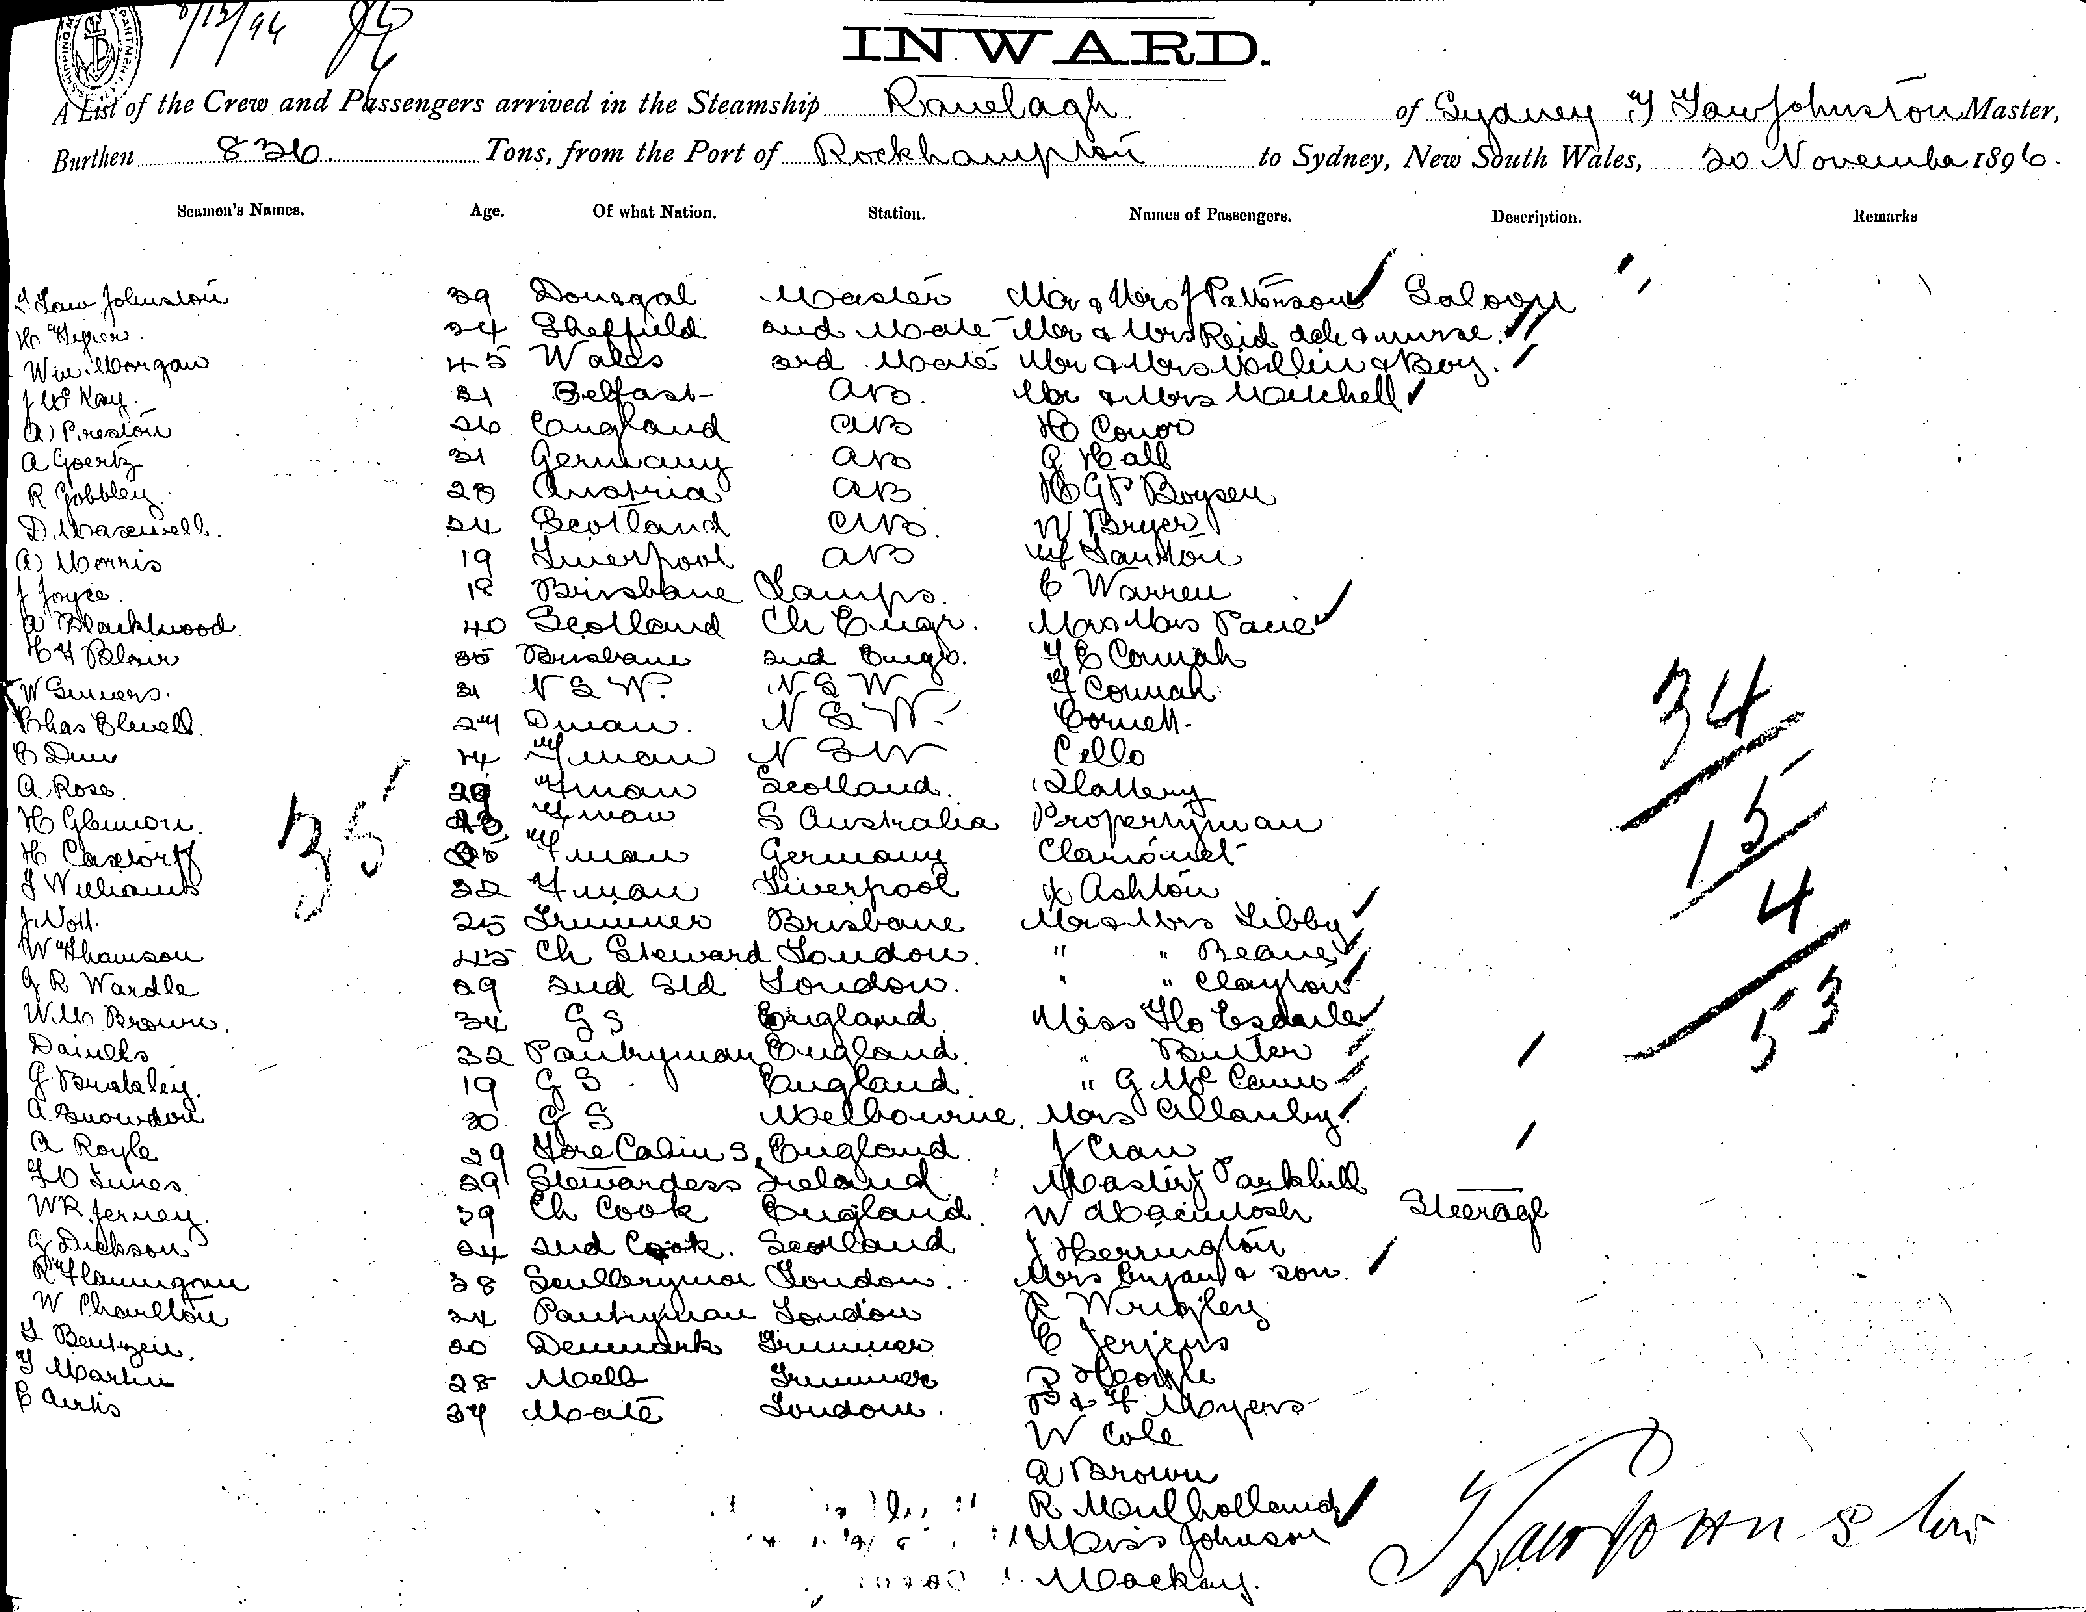 INWARD.
A List of the Crew and Passengers arrived in the Steamship Ranelagh of Sydney, T Law Johnston Master,
Burthen 836 Tons, from the Port of Rockhampton to Sydney, New South Wales, 20 November 1896.
Seamen's Names. Age. Of what Nation. Station. Names of Passengers. Description. Remarks
T Law Johnston 39 Donegal Master Mr & Mrs J Pattinson Saloon
34 Sheffield 2nd Mate Mr & Mrs Reid & nurse.
Wm Morgan 45 Wales 3rd Mate Mr & Mrs & Boy.
J McKay. 31 Belfast AB. Mr & Mrs Mitchell
A Preston 26 England AB H Conor
A Goertz 31 Germany AB G Hall
R Gobbley. 28 Austria AB H G P Boysen
D Maxwell. 24 Scotland AB. W Bryer
A Morris 19 Liverpool AB
J Joyce. 18 Brisbane Lamps. C Warren
A Blackwood 40 Scotland Ch Engr. Mr & Mrs
H F Blair 35 Brisbane 2nd Engr.
W 31 N S W. N S W
Chas Elwell. 24 Dman. N S W. Cornett.
C Dun 24 Fman N S W Cello
A Rose. 29 Fman Scotland. Slattery
H Glennon. Fman S Australia Propertyman
H Castorff Fman Germany Clarionet
J Williams 32 Fman Liverpool Ashton
J Nott. 25 Trimmer Brisbane Mr & Mrs Libby
35
W Thomson 45 Ch Steward London. " " Beane
G R Wardle 29 2nd Std London. " " Clayton
W M Brown. 34 G S England. Miss Flo Esdaile
Daniells 32 Pantryman England. " Bunter
G Braksley. 19 G S England " G McCann
A Snowdon 20 G S Melbourne. Mrs Allanby
A Royle 29 Fore Cabin S. England. J Cran
29 Stewardess Ireland Master J Parkhill
W R Jerney. 39 Ch Cook England. W Macintosh Steerage
G Dickson 24 2nd Cook. Scotland J Herrington
R Flannigan 38 Sculleryman London. Mrs & son.
W Charlton 24 Pantryman London R Wrigley
L Bentzen. 20 Denmark Trimmer C Jerjens
T Martin 28 Melb Trimmer
C Curtis 34 Mate London. B & F Myers
W Cole
A Brown
R Mulholland
Miss Johnson
Mackay.
34
15
4
53
T Law Johnston